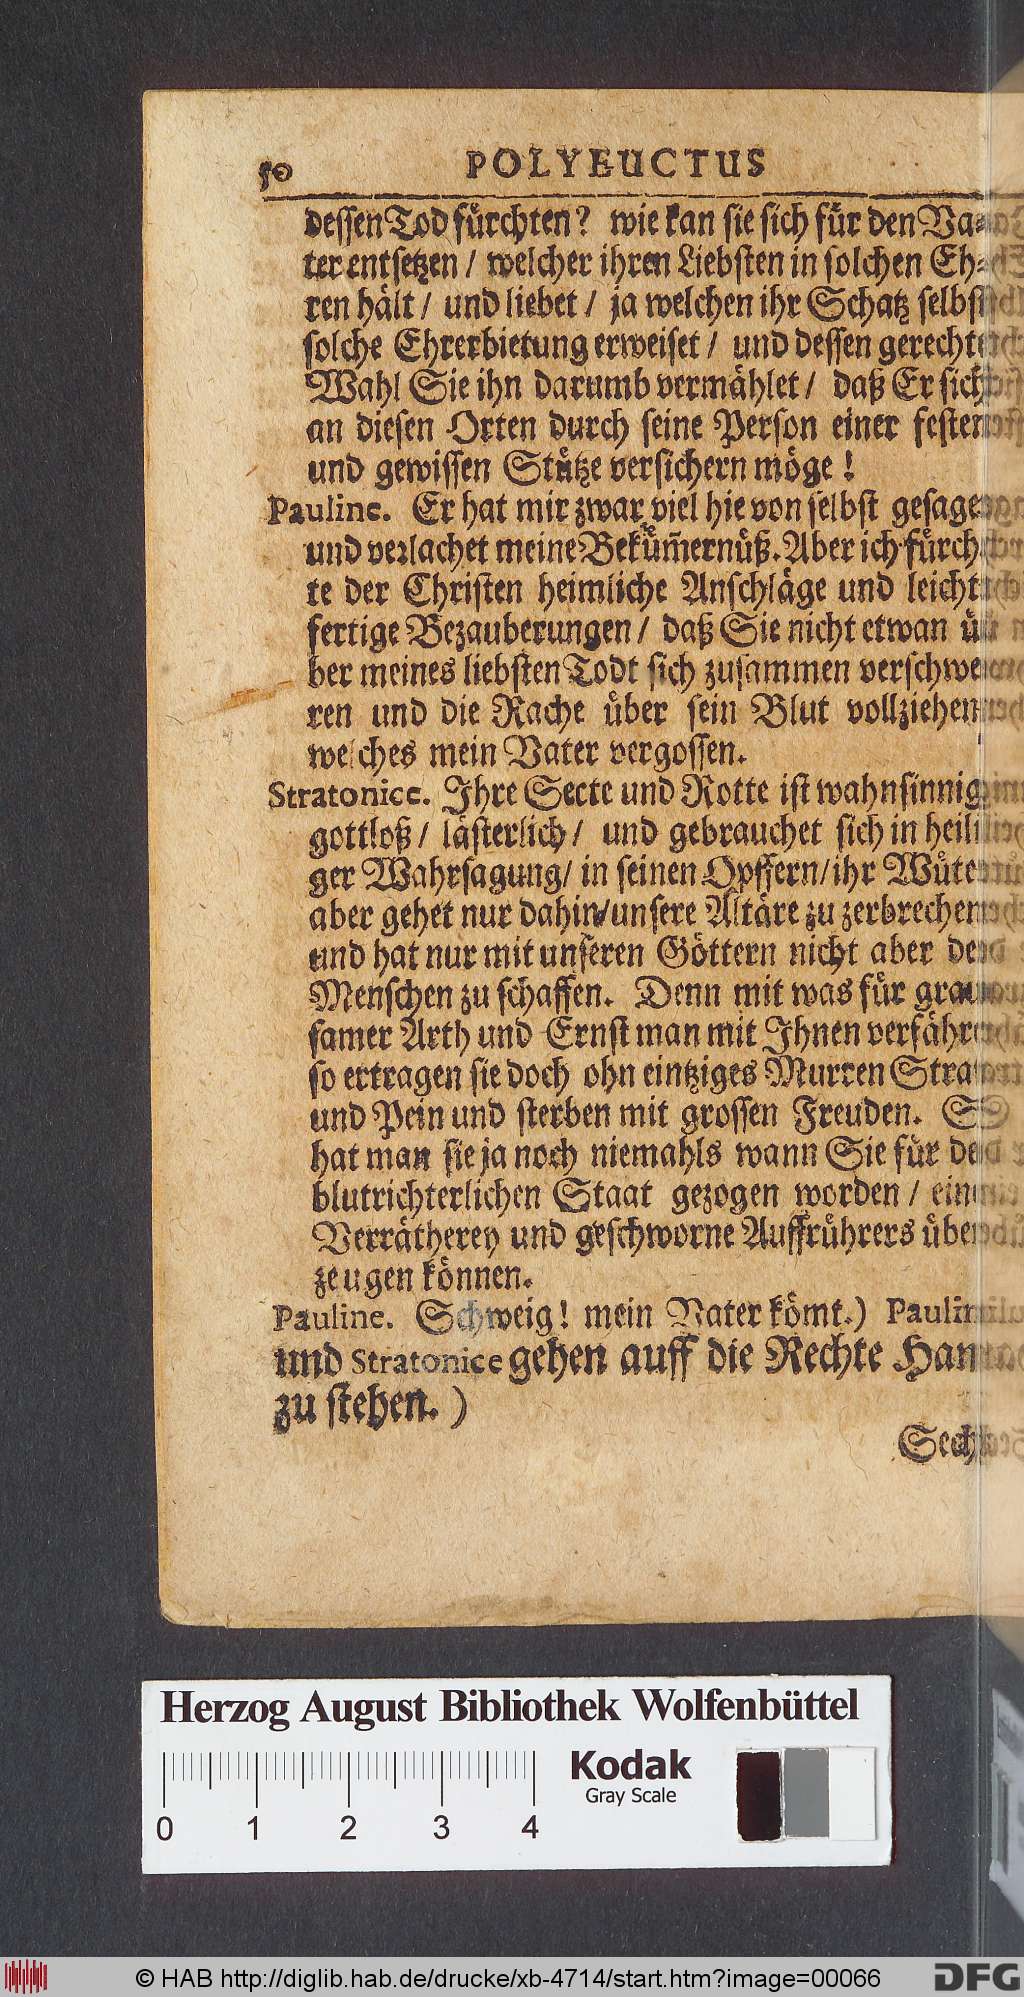 50 POLYEUCTUS
dessen Tod fürchten? wie kan sie sich für den Va-
ter entsetzen / welcher ihren Liebsten in solchen Eh-
ren hält / und liebet / ja welchen ihr Schatz selbst
solche Ehrerbietung erweiset / und dessen gerechte
Wahl Sie ihn darumb vermählet / daß Er sich
an diesen Orten durch seine Person einer festen
und gewissen Stütze versichern möge!
Pauline. Er hat mir zwar viel hie von selbst gesaget
und verlachet meine Beküm̃ernüß. Aber ich fürch-
te der Christen heimliche Anschläge und leicht-
fertige Bezauberungen / daß Sie nicht etwan ü-
ber meines liebsten Todt sich zusammen verschwe-
ren und die Rache über sein Blut vollziehen
welches mein Vater vergossen.
Stratonice. Ihre Secte und Rotte ist wahnsinnig
gottloß / lästerlich / und gebrauchet sich in heili-
ger Wahrsagung / in seinen Opffern / ihr Wüten
aber gehet nur dahin / unsere Altäre zu zerbrechen
und hat nur mit unseren Göttern nicht aber den
Menschen zu schaffen. Denn mit was für grau-
samer Arth und Ernst man mit Ihnen verfähret
so ertragen sie doch ohn eintziges Murren Straff
und Pein und sterben mit grossen Freuden. So
hat man sie ja noch niemahls wann Sie für den
blutrichterlichen Staat gezogen worden / einer
Verrätherey und geschworne Auffrührers über-
zeugen können.
Pauline. Schweig! mein Vater kömt.) Pauline
und Stratonice gehen auff die Rechte Hand
zu stehen. )
Sech-
Herzog August Bibliothek Wolfenbüttel
Kodak
Gray Scale
0 1 2 3 4
© HAB http://diglib.hab.de/drucke/xb-4714/start.htm?image=00066
DFG